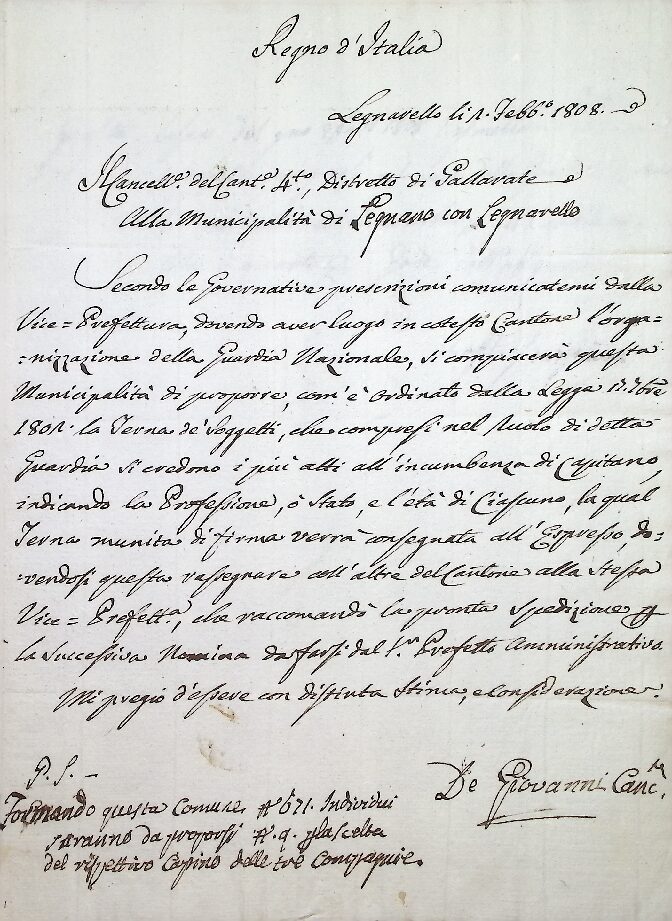 Regno d'Italia
Legnarello li 1. Febb.º 1808.
Il Cancell.º del Cant.º 4.to, Distretto di Gallarate
Alla Municipalità di Legnano con Legnarello
Secondo le Governative prescrizioni comunicatemi dalla
Vice=Prefettura, dovendo aver luogo in cotesto Cantone l'orga=
=nizzazione della Guardia Nazionale, si compiacerà questa
Municipalità di proporre, com'è ordinato dalla Legge 17. 7bre
1801. la Terna de' Soggetti, che compresi nel Ruolo di detta
Guardia si credono i più atti all'incumbenza di Capitano,
indicando la Professione, ò Stato, e l'età di Ciascuno, la qual
Terna munita di firma verrà consegnata all'Espresso, do=
=vendosi questa rassegnare coll'altre del Cantone alla Stessa
Vice=Prefett.a, che raccomandò la pronta spedizione
la successiva Nomina da farsi dal Prefetto Amministrativo.
Mi pregio d'essere con distinta Stima, e Considerazione.
De Giovanni Canc.
P. S. -
Formando questa Comune N° 671. Individui
saranno da proporsi N°. 9. scelta
del rispettivo Capino delle trè Compagnie.